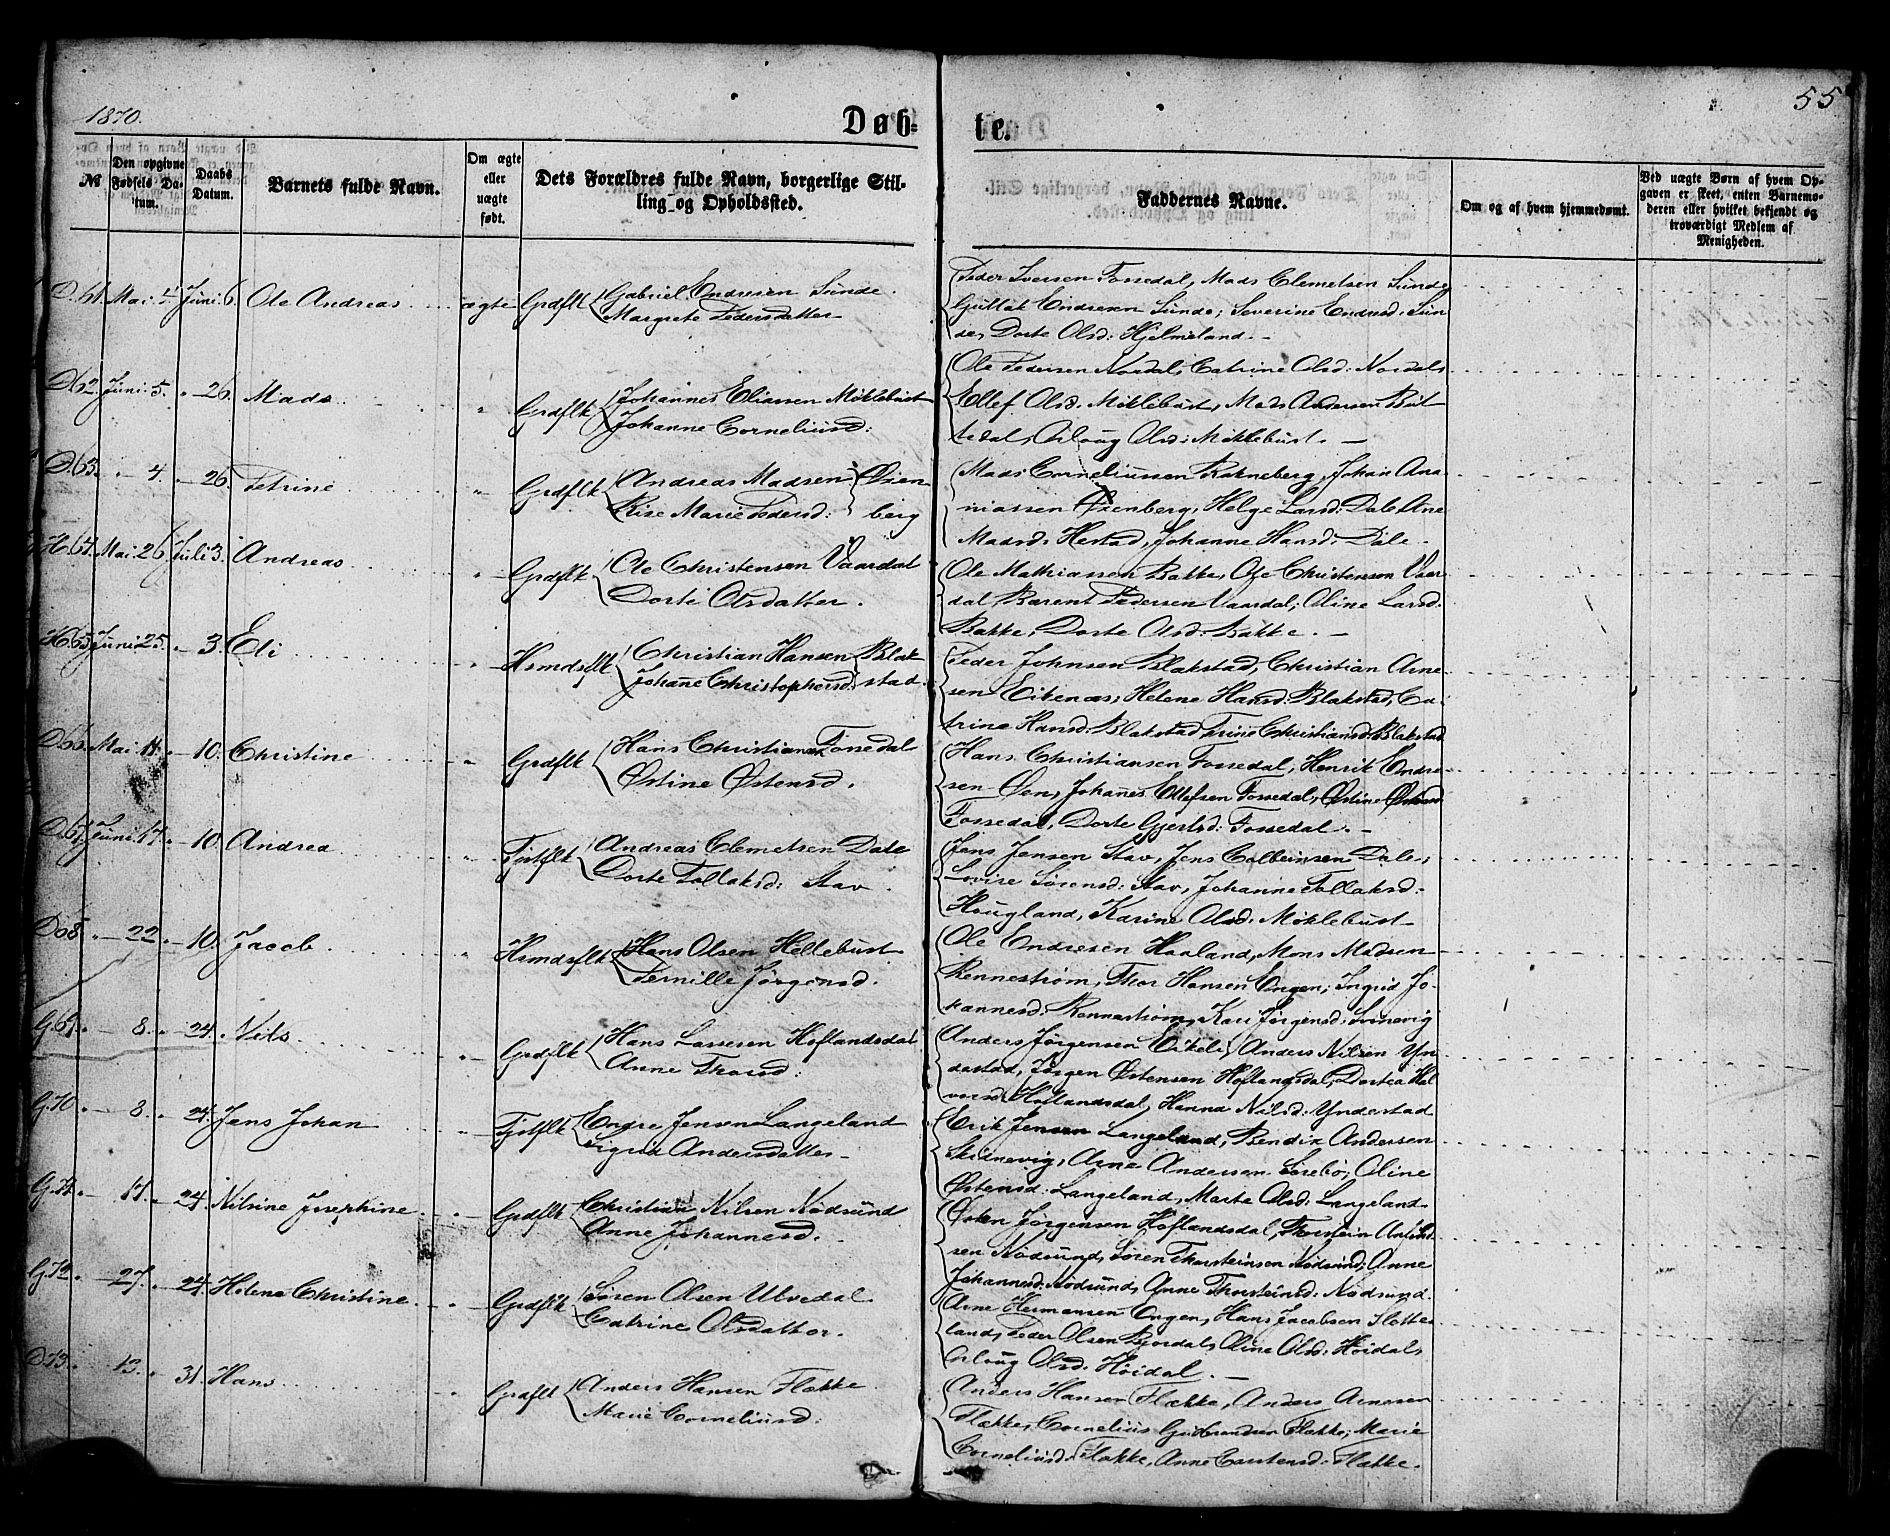 1870.
Døb-
te.
55
№
Den opgivne Fødsels Datum.
Daabs Datum.
Barnets fulde Navn.
Om ægte eller uægte født.
Dets Forældres fulde Navn, borgerlige Stilling og Opholdssted.
Faddernes Navne.
Om og af hvem hjemmedøbt.
Ved uægte Børn af hvem Opgaven er skeet, enten Barnemoderen eller hvilket bekjendt og troværdigt Medlem af Menigheden.
D.61. Mai 5. Juni 6. Ole Andreas ægte Grdflk Gabriel Endresen Sunde.
Margrete Pedersdatter
Peder Iversen Fossedal, Mads Clemetsen Sunde
Guttak Endresen Sunde, Severine Endresd. Sun
de, Dorte Olsd: Hjelmeland.
D62. Juni 5. " 26. Mads " Grdflk Johannes Eliassen Møklebust
Johanne Corneliusd:
Ole Pedersen Nordal, Catrine Olsd: Nordal,
Ellef Olsd. Møklebust, Mads Andersen
tedal, Arloug Olsd: Møklebust.
D.63. " 4. " 26. Petrine " Grdflk Andreas Madsen Øxen
Rise Marie Pedersd: berg
Mads Corneliussen Rakneberg, Johan Ana
niassen Øxenberg, Helge Larsd: Dale Ane
Madsd: Herstad, Johanne Hansd: Dale.
H.64. Mai 26. Juli 3. Andreas " Grdflk Ole Christensen Vaardal
Dorte Olsdatter.
Ole Mathiassen Bakke, Ole Christensen Vaar
dal, Barent Pedersen Vaardal, Oline Larsd.
Bakke, Dorte Olsd: Bakke.
H65. Juni 25. " 3. Eli " Hsmdsflk Christian Hansen Blak
Johane Christophersd. stad.
Peder Johnsen Blakstad, Christian Arne
sen Eikenæs, Helene Hansd: Blakstad, Ca
trine Hansd: Blakstad, Trine Christiansd: Blakstad
D66. Mai 11. " 10. Christine " Grdflk Hans Christiansen Fossedal
Østine Østensd.
Hans Christiansen Fossedal, Henrik Endre
sen Øen, Johanes Ellefsen Fossedal, Østine Østensd
Fossedal, Dorte Gjertsd: Fossedal.
D.67. Juni 17. " 10. Andrea " Fjstflk Andreas Clemetsen Dale
Dorte Tollaksd: Stav.
Jens Jensen Stav, Jens Colbeinsen Dale,
Lovise Sørensd: Stav, Johanne Tollaksd:
Hougland, Karine Olsd: Møklebust
D68. " 22. " 10. Jacob " Hsmdsflk Hans Olsen Hellebust
Pernille Jørgensd.
Ole Endresen Haaland, Mons Madsen
Rennestrøm, Thor Hansen Engen, Ingrid Jo
hannesd: Rennestrøm, Kari Jørgensd: Svinevig
G.69. " 8. " 24. Nils " Grdflk Hans Lassesen Hoflandsdal
Anne Thorsd:
Anders Jørgensen Eikeli, Anders Nilsen Yn
destad, Jørgen Østensen Hoflandsdal, Dortea Hal
vorsd Hoflandsdal, Hanna Nilsd: Yndestad
G.70. " 8. " 24. Jens Johan " Fjstflk Endre Jensen Langeland
Sigrid Andersdatter
Erik Jensen Langeland, Bendix Andersen
Skidnevig, Arne Andersen Sørebø, Oline
Østensd: Langeland, Marte Olsd: Langeland.
G.71. " 17. " 24. Nilsine Josephine " Grdflk Christian Nilsen Nødsund
Anne Johannesd.
Østen Jørgensen Hoflandsdal, Thorstein
sen Nødsund, Søren Thorsteinsen Nødsund, Anne
Johannesd: Nødsund, Anne Thorsteinsd: Nødsund.
G.72. " 27. " 24. Helene Christine " Grdflk Søren Olsen Ulvedal
Catrine Olsdatter.
Arne Hermansen Engen, Hans Jacobsen Slotte
land, Peder Olsen Bjordal, Oline Olsd: Høidal,
Arloug Olsd: Høidal.
D73. " 13. " 31. Hans " Grdflk Anders Hansen Flekke
Marie Corneliusd:
Anders Hansen Flække, Anders Arnesen
Flække, Cornelius Gudbrandsen Flække, Marie
Corneliusd: Flække, Anne Carstensd: Flække.